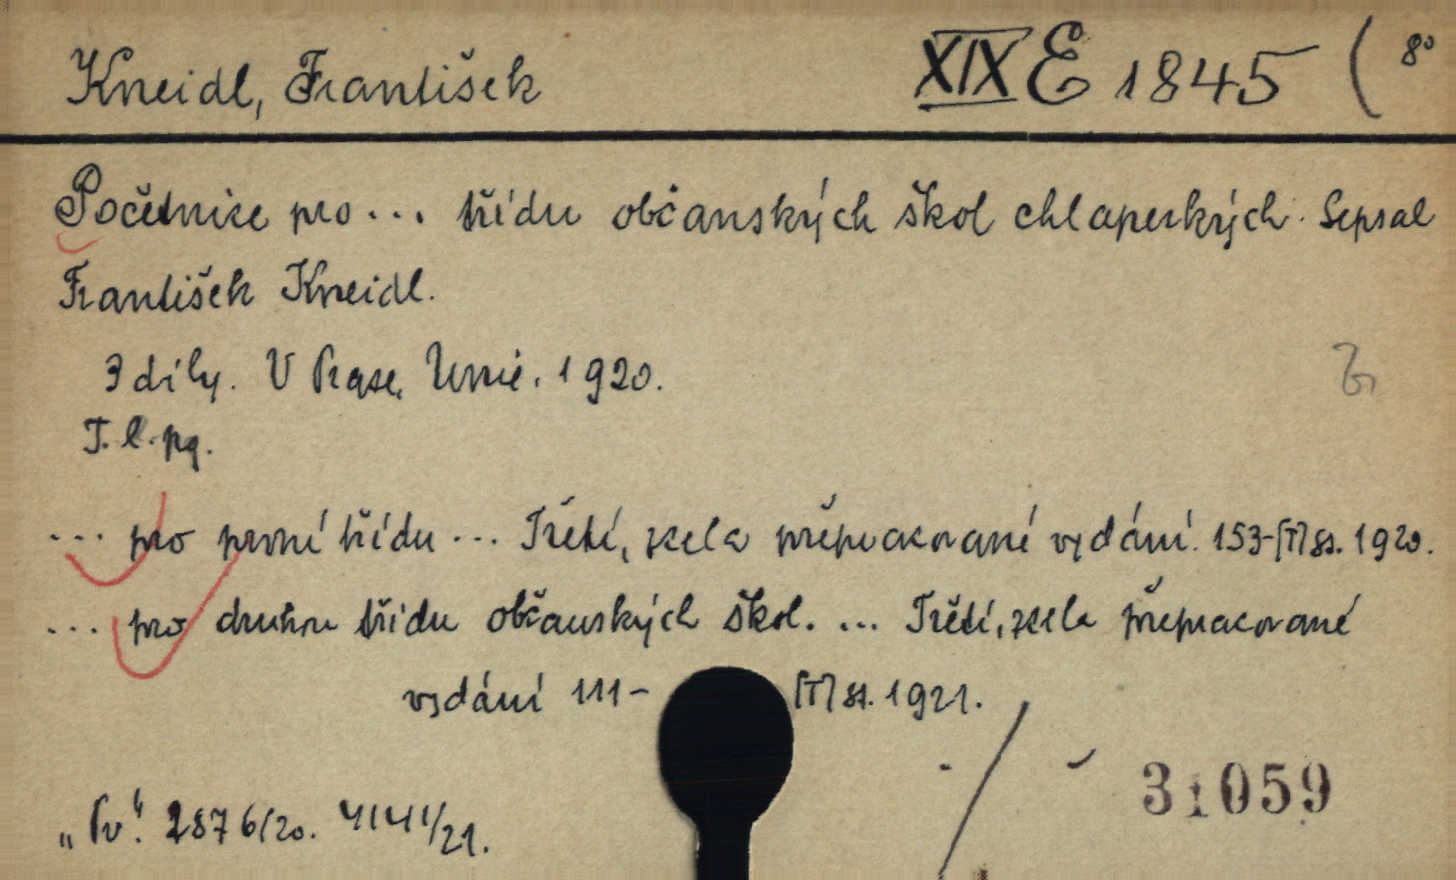 Kneidl, František XIX E 1845 ( 8°
Početnice pro... třídu občanských škol chlapeckých. Sepsal
František Kneidl.
3 díly. V Praze, Unie. 1920.
T. l. pg.
... pro první třídu ... Třetí, zcela přepracované vydání. 153-[I] ss. 1920.
... pro druhou třídu občanských škol. ... Třetí, zcela přepracované
vydání 111- [I] ss. 1921.
31059
„Pv." 2876/20. 4141/21.